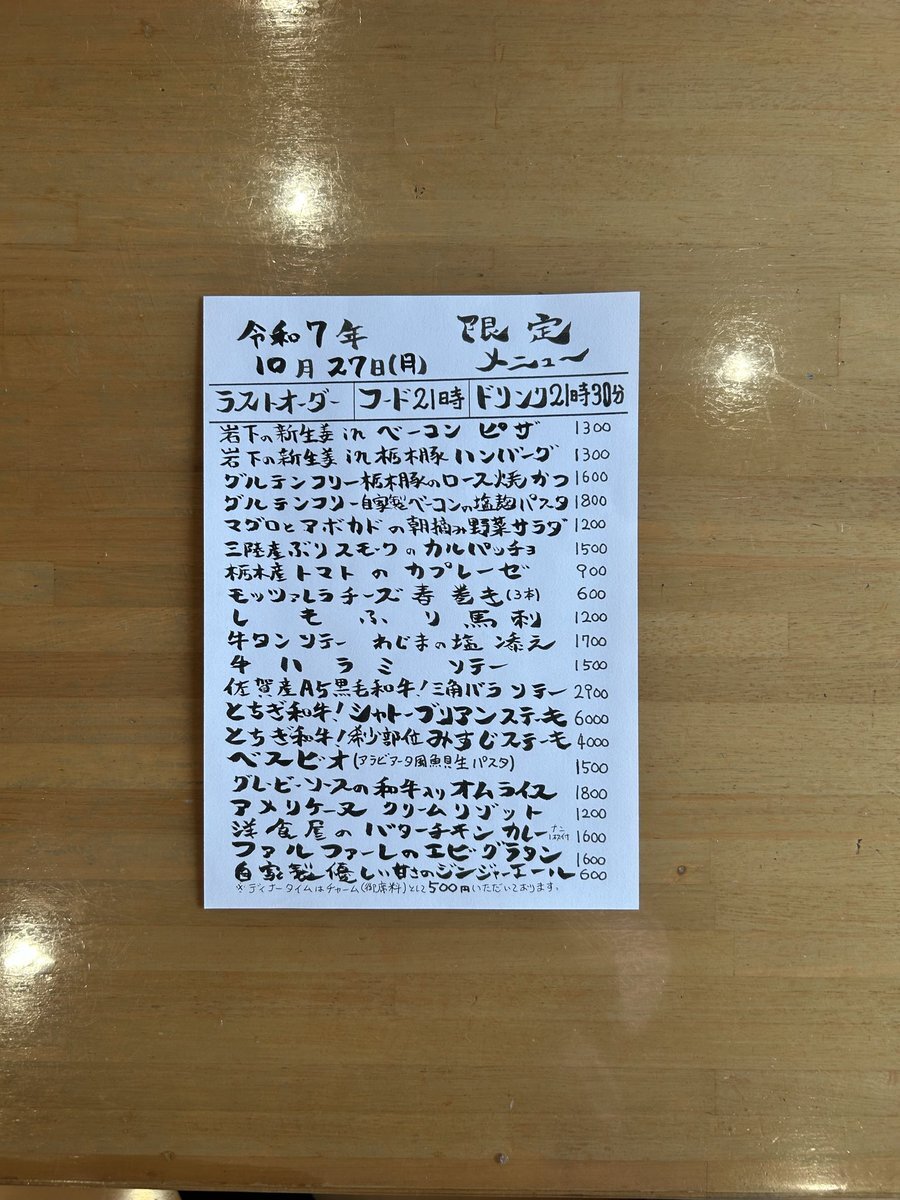 令和7年 限定
10月27日(月) メニュー
ラストオーダー フード21時 ドリンク21時30分
岩下の新生姜inベーコンピザ 1300
岩下の新生姜in栃木豚ハンバーグ 1300
グルテンフリー栃木豚のロース焼かつ 1600
グルテンフリー自家製ベーコンの塩麹パスタ 1800
マグロとアボカドの朝摘み野菜サラダ 1200
三陸産ぶりスモークのカルパッチョ 1500
栃木産トマトのカプレーゼ 900
モッツァレラチーズ春巻き(3本) 600
しもふり馬刺 1200
牛タンソテー わじまの塩添え 1700
牛ハラミソテー 1500
佐賀産A5黒毛和牛!三角バラソテー 2900
とちぎ和牛!シャトーブリアンステーキ 6000
とちぎ和牛!希少部位みすじステーキ 4000
ベスビオ(アラビアータ風魚貝生パスタ) 1500
グレービーソースの和牛入りオムライス 1800
アメリケーヌクリームリゾット 1200
洋食屋のバターチキンカレー ナン 1600
ファルファーレのエビグラタン 1600
自家製優しい甘さのジンジャーエール 600
※ディナータイムはチャーム(御席料)として500円いただいております。